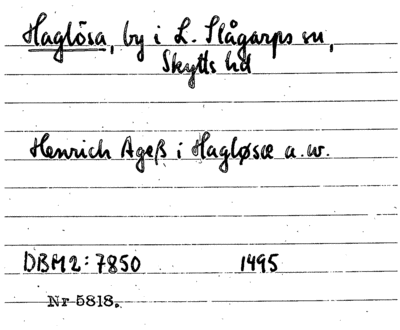 Haglösa, by i L. Slågarps sn,
Skytts hd
Henrich Ageß i Hagløsæ a.w.
DBM2:7850 1495
Nr 5818.